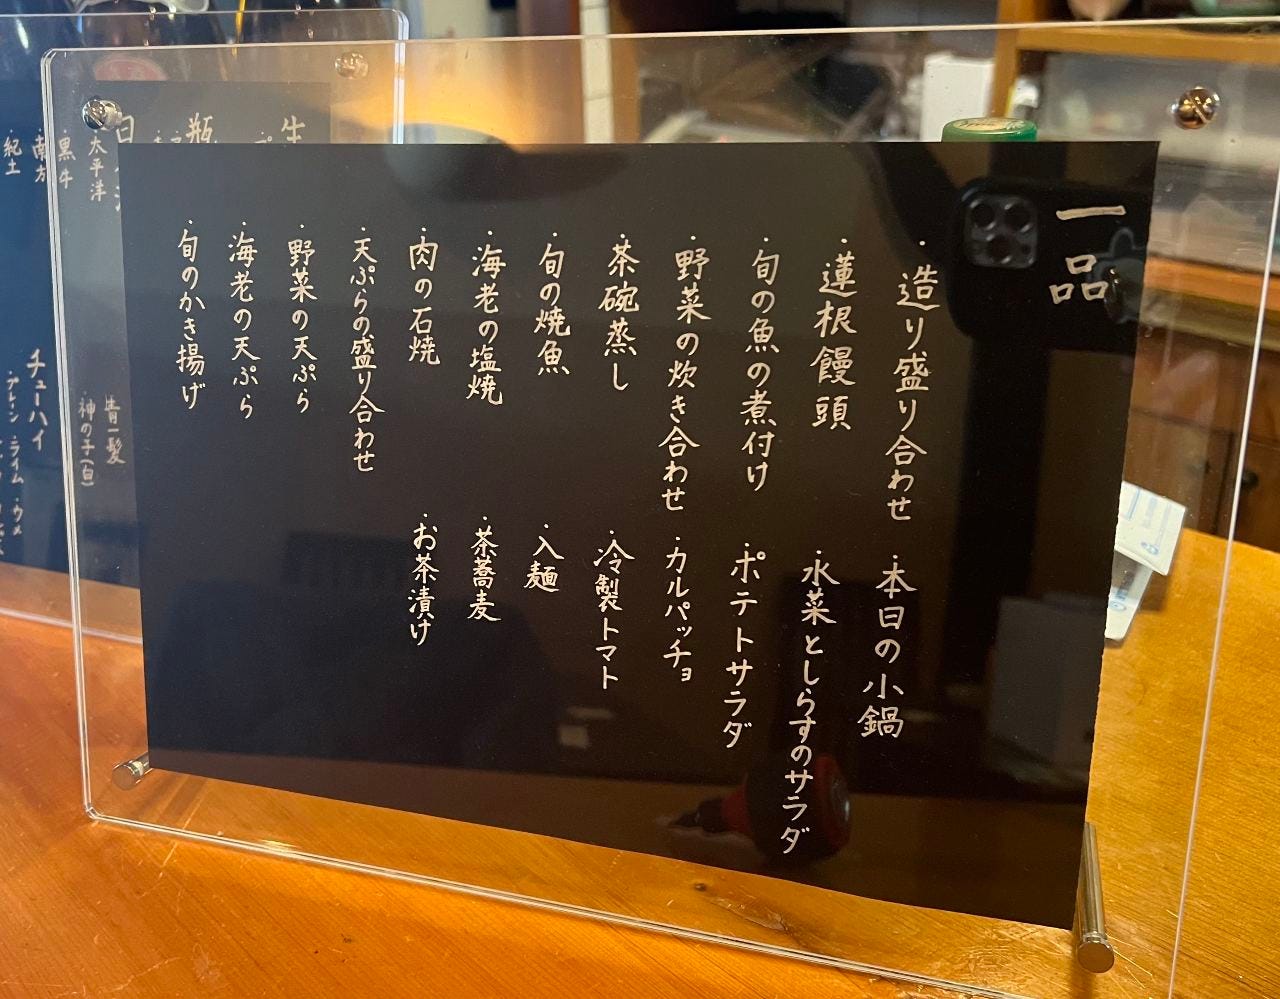 一品
・造り盛り合わせ
・蓮根饅頭
・旬の魚の煮付け
・野菜の炊き合わせ
・茶碗蒸し
・旬の焼魚
・海老の塩焼
・肉の石焼
・天ぷらの盛り合わせ
・野菜の天ぷら
・海老の天ぷら
・旬のかき揚げ
・本日の小鍋
・水菜としらすのサラダ
・ポテトサラダ
・カルパッチョ
・冷製トマト
・入麺
・茶蕎麦
・お茶漬け
生
瓶
・太平洋
・黒牛
・南方
・紀土
・青一髪
・神の子(白)
チューハイ
・プレーン・ライム・ウメ